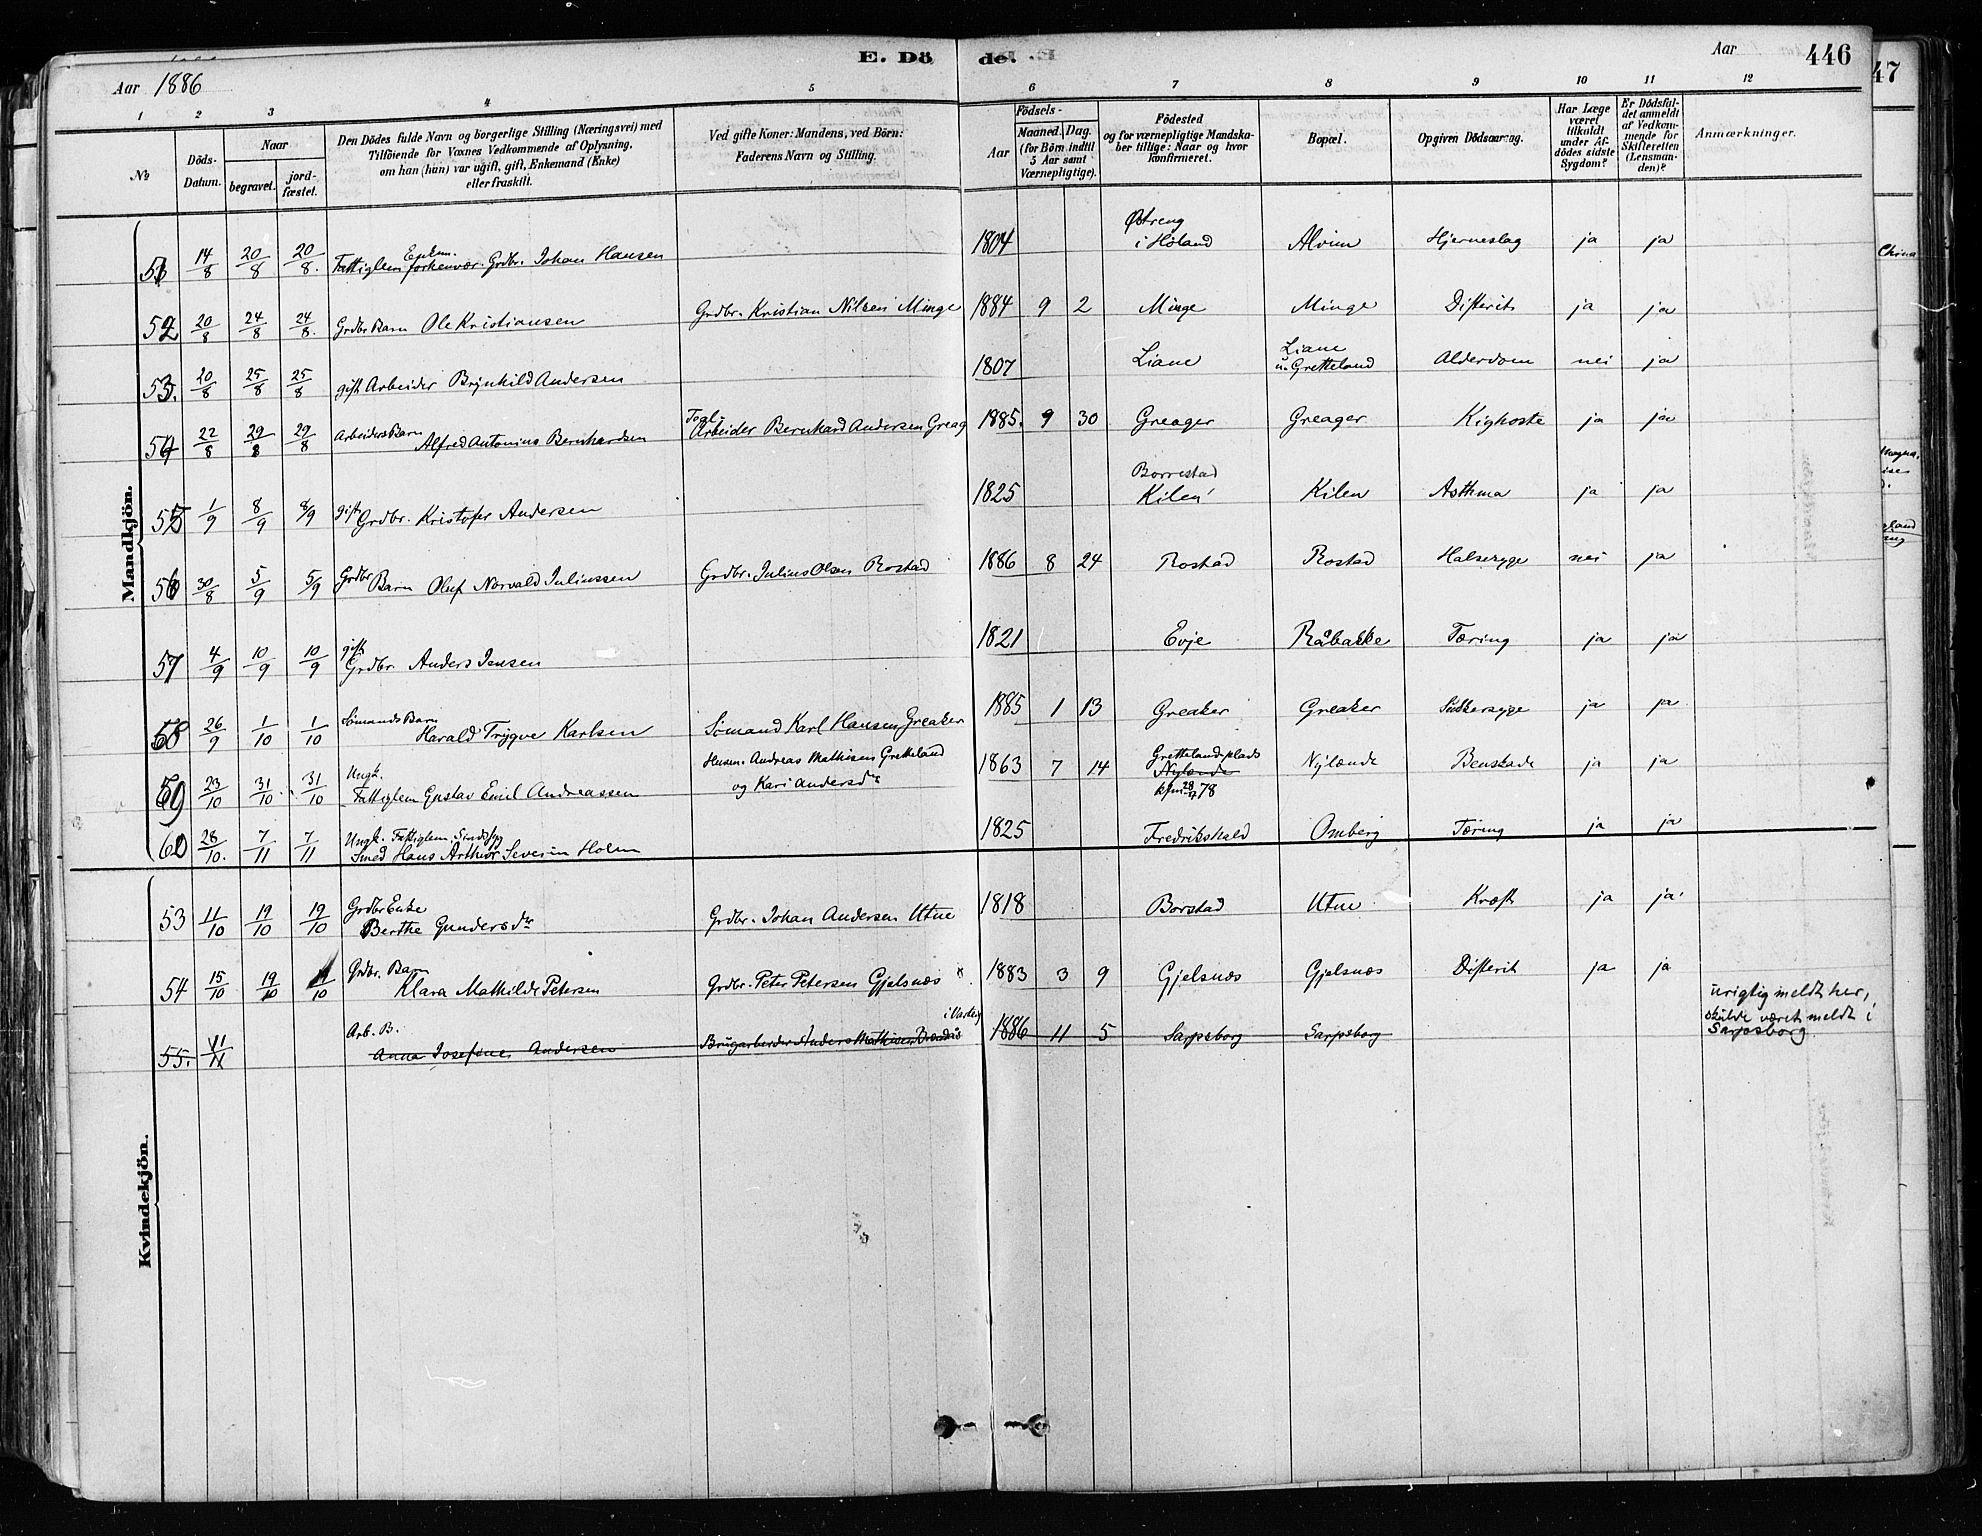 E. Döde.
Aar 1886
Aar
446
47
1 2 3 4 5 6 7 8 9 10 11 12
№
Döds-Datum.
Naar
begravet.
jord-fæstet.
Den Dödes fulde Navn og borgerlige Stilling (Næringsvei) med
Tilföiende for Voxnes Vedkommende af Oplysning,
om han (hun) var ugift, gift, Enkemand (Enke)
eller fraskilt.
Ved gifte Koner: Mandens, ved Börn:
Faderens Navn og Stilling.
Födsels-
Aar
Maaned. Dag.
(for Börn indtil
5 Aar samt
Værnepligtige).
Födested
og for værnepligtige Mandska-
ber tillige: Naar og hvor
konfirmeret.
Bopæl.
Opgiven Dödsaarsag.
Har Læge
været
tilkaldt
under Af-
dödes sidste
Sygdom?
Er Dödsfal-
det anmeldt
af Vedkom-
mende for
Skifteretten
(Lensman-
den)?
Anmærkninger.
Mandkjön.
51 14/8 20/8 20/8. Enkem. Fattiglem forhenvær. Grdbr. Johan Hansen 1804 Østreng i Høland Alvim Hjerneslag ja ja
52 20/8 24/8 24/8. Grdbr Barn Ole Kristiansen Grdbr. Kristian Nilsen Minge 1884 9 2 Minge Minge Difterit ja ja
53. 20/8 25/8 25/8 gift Arbeider Brynhild Andersen 1807 Liane Liane u. Gretteland Alderdom nei ja
54 22/8 29/8 29/8 Arbeiders Barn Alfred Antonius Bernhardsen Arbeider Bernhard Andersen Greag 1885. 9 30 Greager Greager Kighoste ja ja
55 1/9 8/9 8/9 gift Grdbr. Kristofer Andersen 1825 Borrestad Kilen Kilen Asthma ja ja
56 30/8 5/9 5/9 Grdbr Barn Oluf Norvald Juliussen Grdbr. Julius Olsen Rostad 1886 8 24 Rostad Rostad Halssyge nei ja
57 4/9 10/9 10/9 gift Grdbr. Anders Jensen 1821 Evje Råbakke Tæring ja ja
58 26/9 1/10 1/10 Sømands Barn Harald Trygve Karlsen Sømand Karl Hansen Greaker 1885 1 13 Greaker Greaker ja ja
59 23/10 31/10 31/10 Ungk. Fattiglem Gustav Emil Andreassen Husm. Andreas Mathisen Gretteland og Kari Andersdr 1863 7 14 Grettelandsplads Nylænde kfm 78 Nylænde Benskade ja ja
60 28/10. 7/11 7/11 Ungk. Fattiglem Sindssyg Smed Hans Arthur Severin Holm 1825 Fredrikshald Omberg Tæring ja ja
Kvindekjön.
53 11/10 19/10 19/10 Grdbr Enke Berthe Gundersdr Grdbr. Johan Andersen Utne 1818 Borstad Utne Kræft ja ja
54 15/10 19/10 19/10 Grdbr. Barn Klara Mathilde Petersen Grdbr. Peter Petersen Gjelsnæs 1883 3 9 Gjelsnæs Gjelsnæs Difterit ja ja
55. 11/11 Arb. B. Anna Josefine Andersen Brugarbeider Anders Mathisen i Varteig 1886 11 5 Sarpsborg Sarpsborg
urigtig meldt her,
skulde været meldt i
Sarpsborg